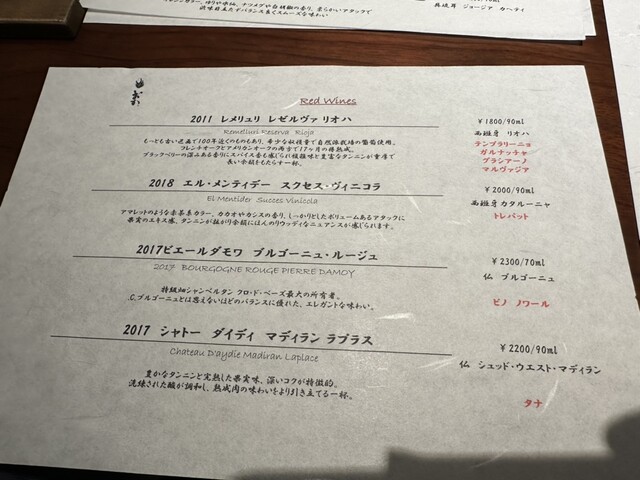 渋味好またずバランス良くスムーズな味わい
ジョージア カヘティ
Red Wines
2011 レメリュリ レゼルヴァ リオハ
￥1800/90ml
Remelluri Reserva Rioja
西班牙 リオハ
もっとも古い区画で100年近くのものもあり、希少な収穫量で自然派栽培の葡萄使用。
テンプラリーニョ
フレンチオークとアメリカンオークの両方で17ヶ月の樽熟成。
ガルナッチャ
ブラックベリーの深みある香りにスパイス香も感じられ複雑味と豊富なタンニンが重厚で
グラシアーノ
長い余韻をもたらす一杯。
マルヴァジア
2018 エル・メンティデー スクセス・ヴィニコラ
￥2000/90ml
El Mentider Succes Vinicola
西班牙 カタルーニャ
アマレットのような赤茶系カラー、カカオやカシスの香り、しっかりとしたボリュームあるアタックに
トレパット
果実のエキス感、タンニンが拡がり余韻にほんのりウッディなニュアンスが感じられます。
2017ピエールダモワ ブルゴーニュ・ルージュ
￥2300/70ml
2017 BOURGOGNE ROUGE PIERRE DAMOY
仏 ブルゴーニュ
特級畑シャンベルタン クロ・ド・ベーズ最大の所有者。
ピノ ノワール
.C.ブルゴーニュとは思えないほどのバランスに優れた、エレガントな味わい。
2017 シャトー ダイディ マディラン ラプラス
￥2200/90ml
Chateau D'aydie Madiran Laplace
仏 シュッド・ウエスト・マディラン
豊かなタンニンと完熟した果実味、深いコクが特徴的。
タナ
洗練された酸が調和し、熟成肉の味わいをより引き立てる一杯。